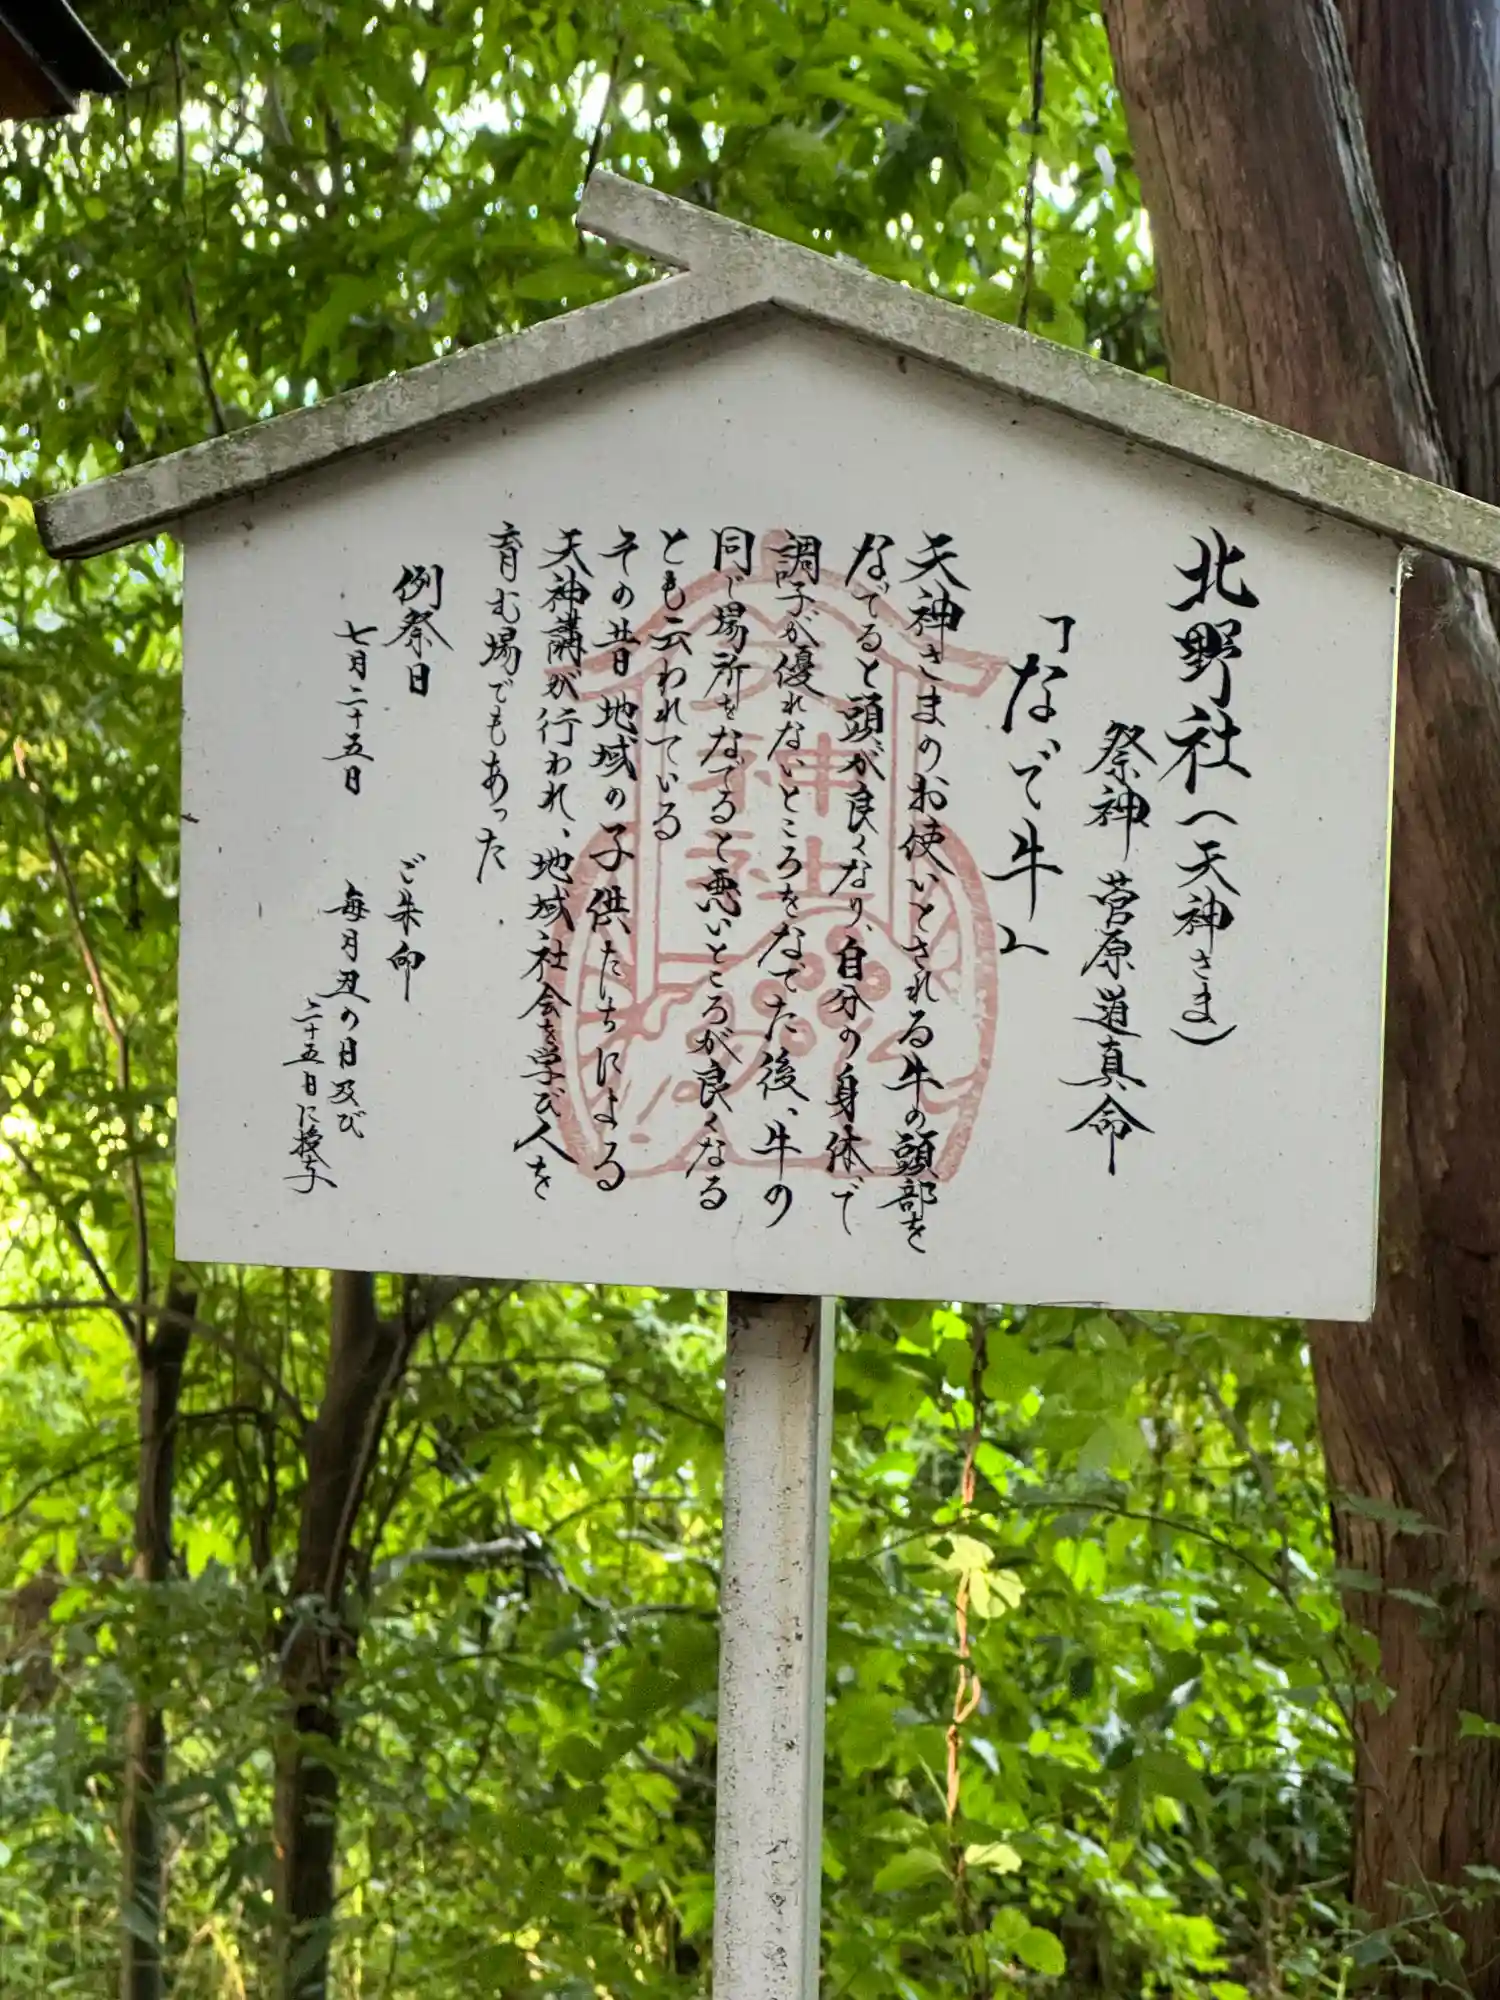 北野社(天神さま)
祭神 菅原道真命
「なで牛」
天神さまのお使いとされる牛の頭部を
なでると頭が良くなり、自分の身体で
調子が優れないところをなでた後、牛の
同じ場所をなでると悪いところが良くなる
とも云われている
その昔地域の子供たちによる
天神講が行われ、地域社会を学び人を
育む場でもあった
例祭日
七月二十五日
ご朱印
毎月丑の日及び
二十五日に授与
天神社